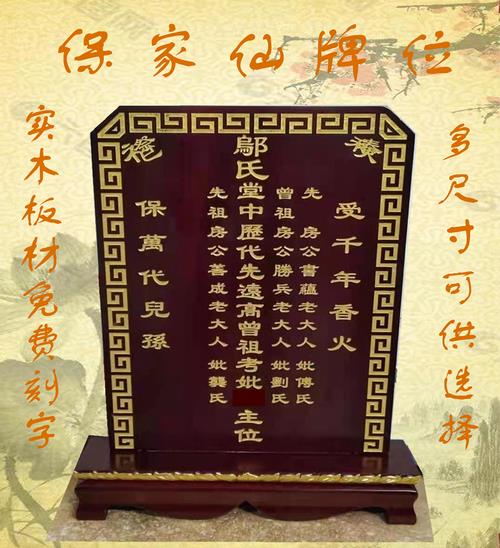 保家仙牌位
多尺寸可供选择
受千年香火
先 房公書蘊老大人 妣傅氏
曾祖房公勝兵老大人 妣劉氏
鄔氏堂中歷代先遠高曾祖考妣 主位
先祖房公善成老大人 妣龔氏
保萬代兒孫
实木板材免费刻字